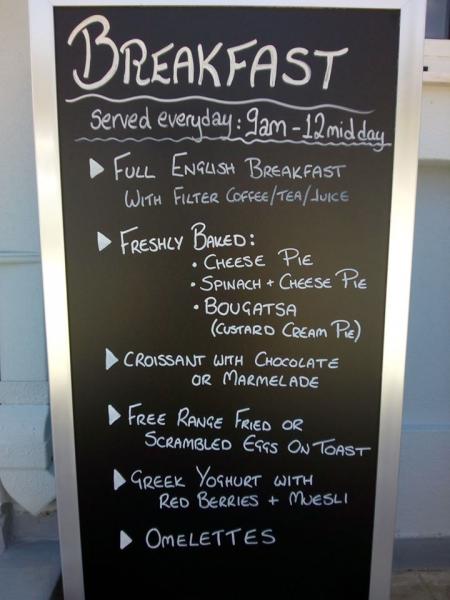 BREAKFAST
Served everyday: 9am - 12 midday
FULL ENGLISH BREAKFAST
WITH FILTER COFFEE/TEA/JUICE
FRESHLY BAKED:
• CHEESE PIE
• SPINACH + CHEESE PIE
• BOUGATSA
(CUSTARD CREAM PIE)
CROISSANT WITH CHOCOLATE
OR MARMELADE
FREE RANGE FRIED OR
SCRAMBLED EGGS ON TOAST
GREEK YOGHURT WITH
RED BERRIES + MUESLI
OMELETTES